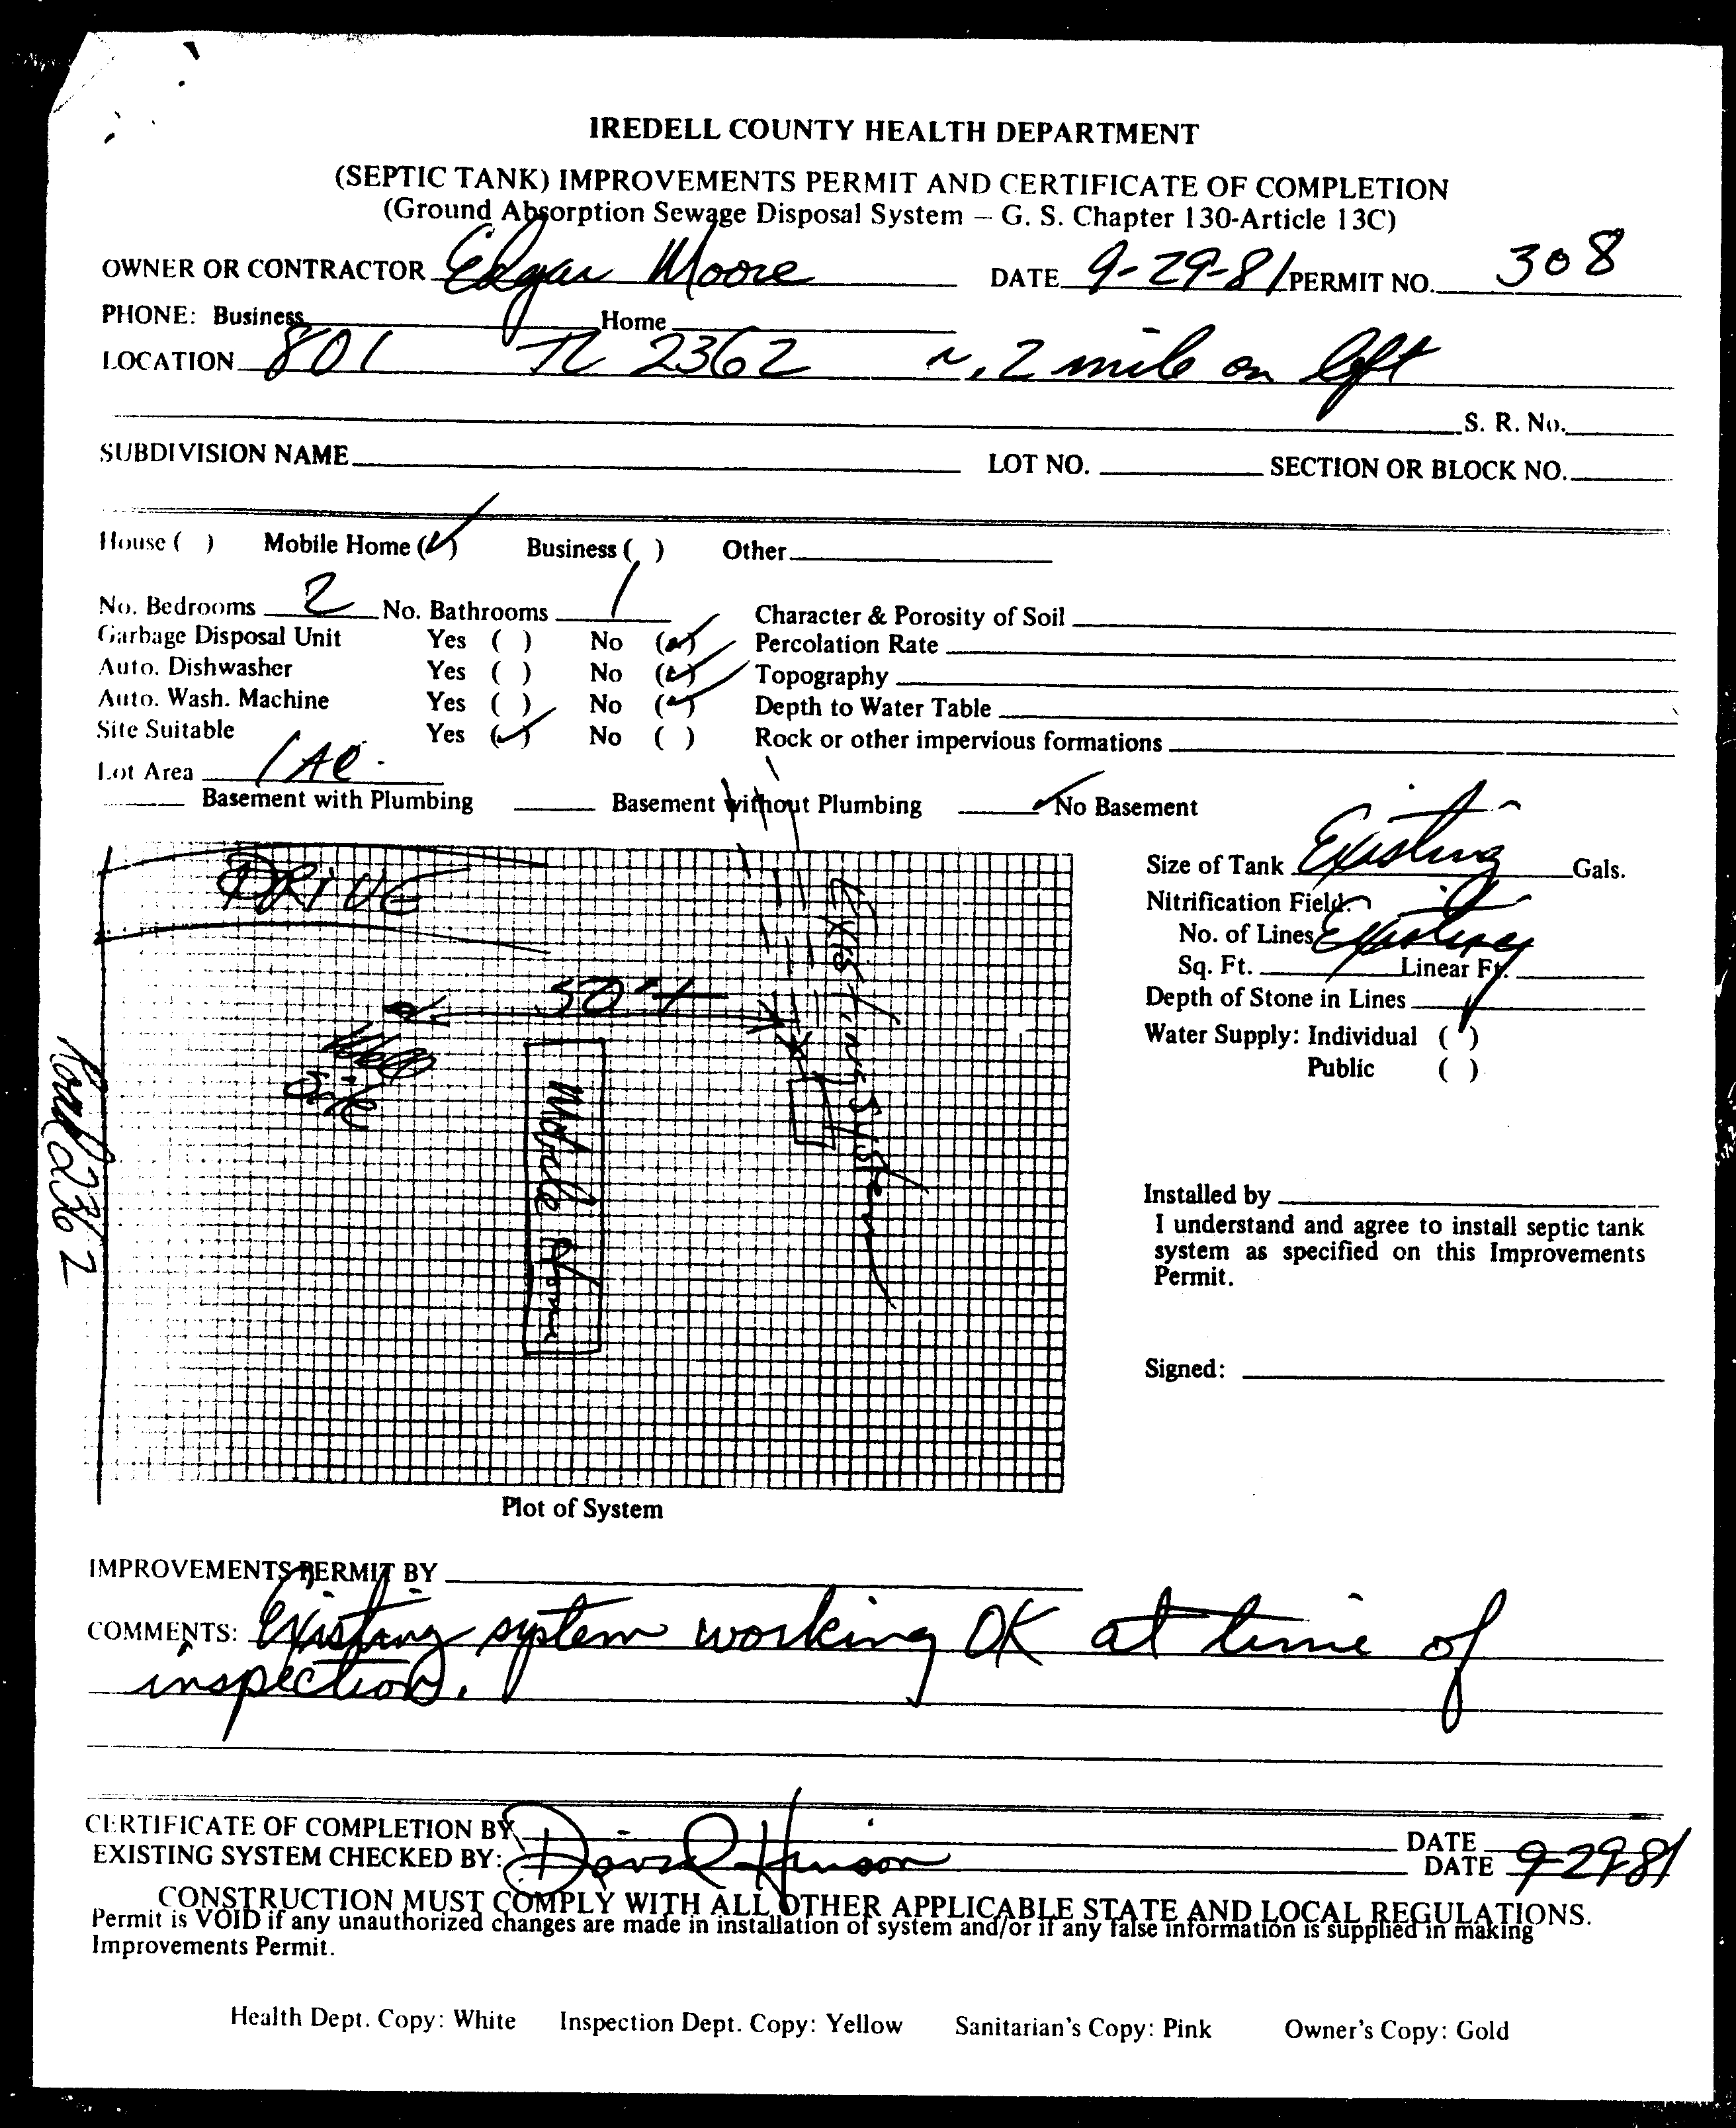 IREDELL COUNTY HEALTH DEPARTMENT
(SEPTIC TANK) IMPROVEMENTS PERMIT AND CERTIFICATE OF COMPLETION
(Ground Absorption Sewage Disposal System – G. S. Chapter 130-Article 13C)
OWNER OR CONTRACTOR Edgar Moore DATE 9-29-81 PERMIT NO. 308
PHONE: Business Home
LOCATION 801 TL 2362 ~.2 mile on left
S. R. No.
SUBDIVISION NAME LOT NO. SECTION OR BLOCK NO.
House ( ) Mobile Home (✓) Business ( ) Other
No. Bedrooms 2 No. Bathrooms 1 Character & Porosity of Soil
Garbage Disposal Unit Yes ( ) No (✓) Percolation Rate
Auto. Dishwasher Yes ( ) No (✓) Topography
Auto. Wash. Machine Yes ( ) No (✓) Depth to Water Table
Site Suitable Yes (✓) No ( ) Rock or other impervious formations
Lot Area 1 AC.
Basement with Plumbing Basement without Plumbing ✓ No Basement
DRIVE
50'+
Well
site
Mobile Home
Existing System
Road 2362
Size of Tank Existing Gals.
Nitrification Field:
No. of Lines Existing
Sq. Ft. Linear Ft.
Depth of Stone in Lines
Water Supply: Individual (✓)
Public ( )
Installed by
I understand and agree to install septic tank
system as specified on this Improvements
Permit.
Signed:
Plot of System
IMPROVEMENTS PERMIT BY
COMMENTS: Existing system working OK at time of
inspection.
CERTIFICATE OF COMPLETION BY DATE
EXISTING SYSTEM CHECKED BY: David Hinson DATE 9-29-81
CONSTRUCTION MUST COMPLY WITH ALL OTHER APPLICABLE STATE AND LOCAL REGULATIONS.
Permit is VOID if any unauthorized changes are made in installation of system and/or if any false information is supplied in making
Improvements Permit.
Health Dept. Copy: White Inspection Dept. Copy: Yellow Sanitarian's Copy: Pink Owner's Copy: Gold